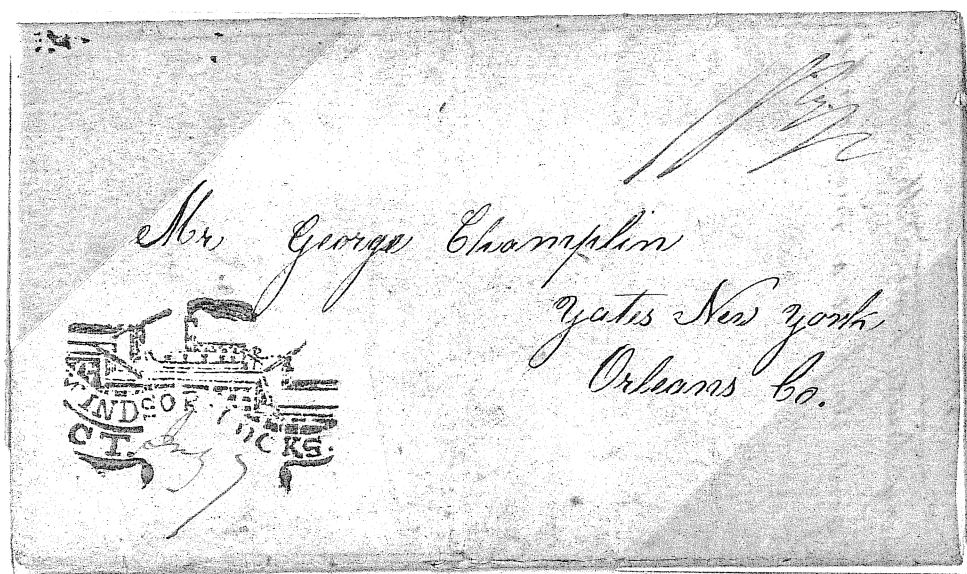 Mr George Champlin
Yates New York
Orleans Co.
WINDSOR LOCKS.
CT.